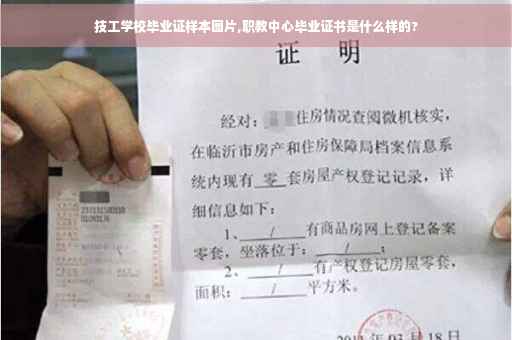 技工学校毕业证样本图片,职教中心毕业证书是什么样的?
证 明
经对: 住房情况查阅微机核实,
在临沂市房产和住房保障局档案信息系
统内现有 零 套房屋产权登记记录,详
细信息如下:
1、 / 有商品房网上登记备案
零套,坐落位于: / ;
2、 / 有产权登记房屋零套,
面积: / 平方米。
03月18日